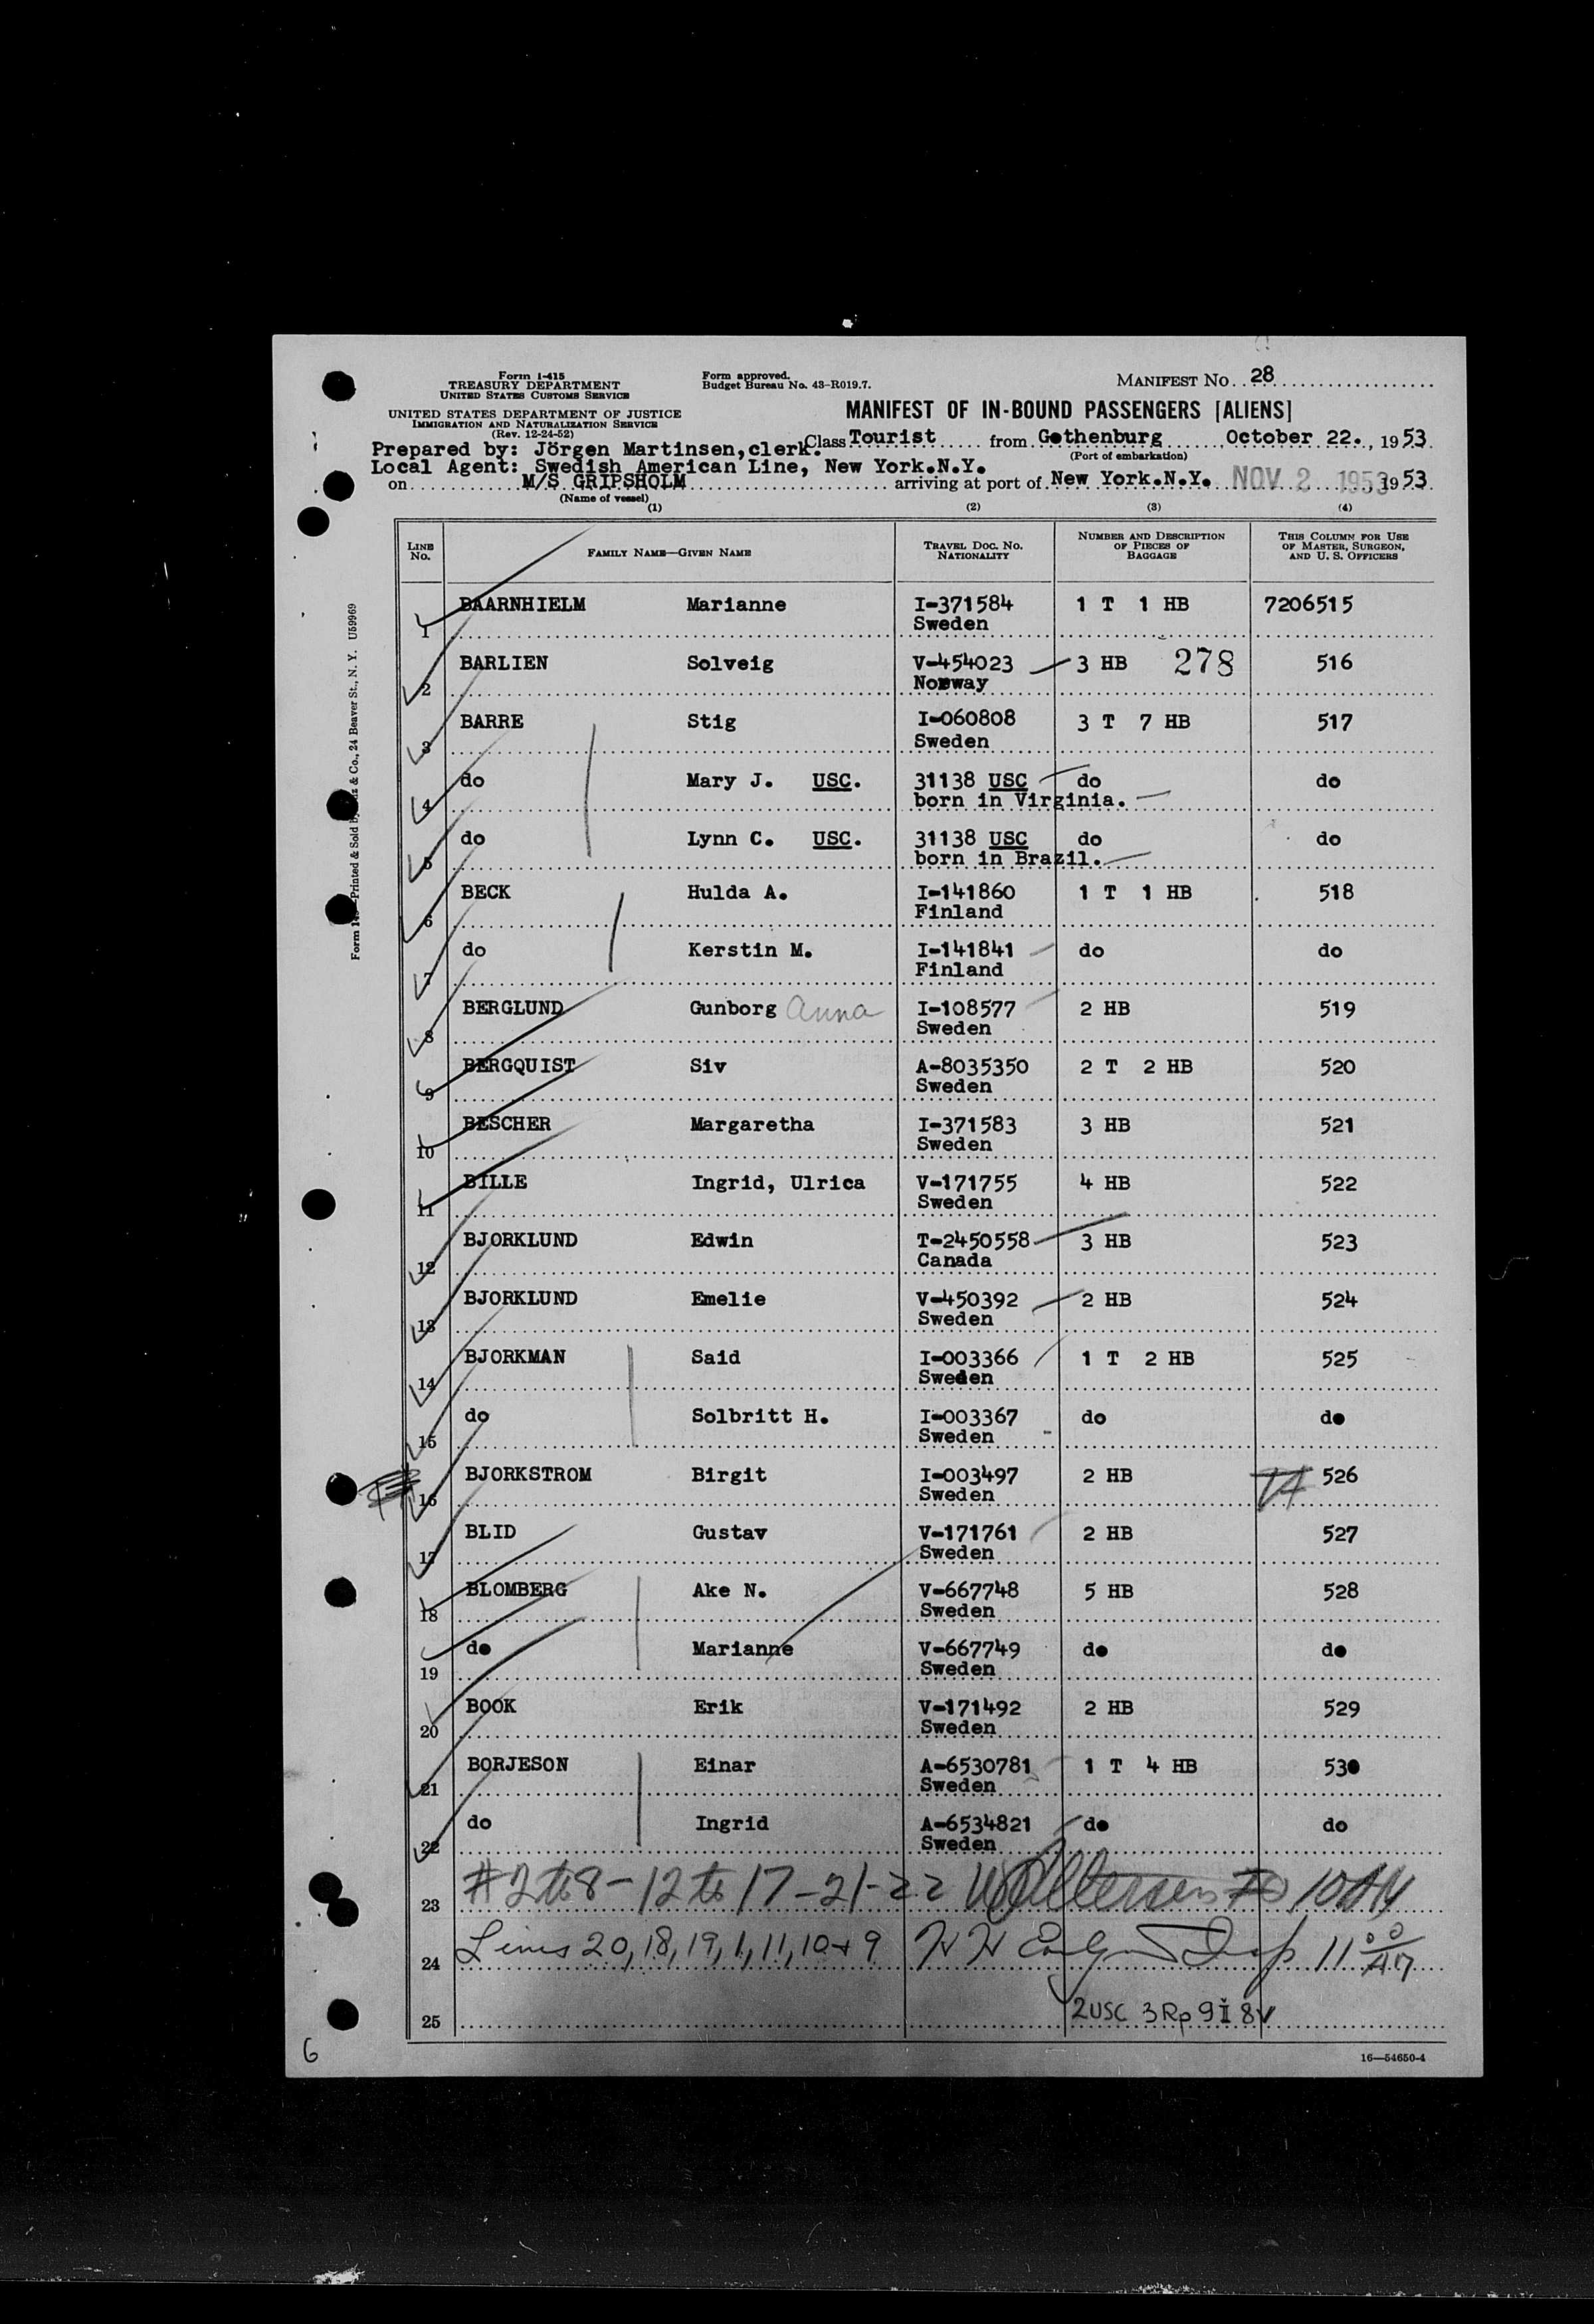 Form I-415
TREASURY DEPARTMENT
UNITED STATES CUSTOMS SERVICE
Form approved.
Budget Bureau No. 43-R019.7.
MANIFEST NO. 28
UNITED STATES DEPARTMENT OF JUSTICE
IMMIGRATION AND NATURALIZATION SERVICE
(Rev. 12-24-52)
MANIFEST OF IN-BOUND PASSENGERS [ALIENS]
Prepared by: Jörgen Martinsen, clerk. Class Tourist from Gothenburg October 22., 1953
(Port of embarkation)
Local Agent: Swedish American Line, New York.N.Y.
on M/S GRIPSHOLM arriving at port of New York.N.Y. NOV 2 1953 1953
(Name of vessel)
(1) (2) (3) (4)
LINE NO. FAMILY NAME—GIVEN NAME TRAVEL DOC. NO. NATIONALITY NUMBER AND DESCRIPTION OF PIECES OF BAGGAGE THIS COLUMN FOR USE OF MASTER, SURGEON, AND U. S. OFFICERS
1 BAARNHIELM Marianne I-371584 1 T 1 HB 7206515
Sweden
2 BARLIEN Solveig V-454023 3 HB 278 516
Norway
3 BARRE Stig I-060808 3 T 7 HB 517
Sweden
4 do Mary J. USC. 31138 USC do do
born in Virginia.
5 do Lynn C. USC. 31138 USC do do
born in Brazil.
6 BECK Hulda A. I-141860 1 T 1 HB 518
Finland
7 do Kerstin M. I-141841 do do
Finland
8 BERGLUND Gunborg Anna I-108577 2 HB 519
Sweden
9 BERGQUIST Siv A-8035350 2 T 2 HB 520
Sweden
10 BESCHER Margaretha I-371583 3 HB 521
Sweden
11 BILLE Ingrid, Ulrica V-171755 4 HB 522
Sweden
12 BJORKLUND Edwin T-2450558 3 HB 523
Canada
13 BJORKLUND Emelie V-450392 2 HB 524
Sweden
14 BJORKMAN Said I-003366 1 T 2 HB 525
Sweden
15 do Solbritt H. I-003367 do do
Sweden
16 BJORKSTROM Birgit I-003497 2 HB 526
Sweden
17 BLID Gustav V-171761 2 HB 527
Sweden
18 BLOMBERG Ake N. V-667748 5 HB 528
Sweden
19 do Marianne V-667749 do do
Sweden
20 BOOK Erik V-171492 2 HB 529
Sweden
21 BORJESON Einar A-6530781 1 T 4 HB 530
Sweden
22 do Ingrid A-6534821 do do
Sweden
23 #2 to 8-12 to 17-21-22 10 AM
24 Lines 20, 18, 19, 1, 11, 10 + 9 Insp 11 00 AM
25 2USC 3Rp 9I 8V
6
16—54650-4
Printed & Sold & Co., 24 Beaver St., N. Y. U59969